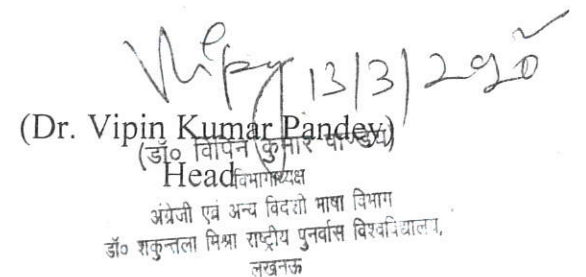 Vipin 13/3/2020
(Dr. Vipin Kumar Pandey)
(डॉ० विपिन कुमार पाण्डेय)
Head
विभागाध्यक्ष
अंग्रेजी एवं अन्य विदेशी भाषा विभाग
डॉ० शकुन्तला मिश्रा राष्ट्रीय पुनर्वास विश्वविद्यालय,
लखनऊ